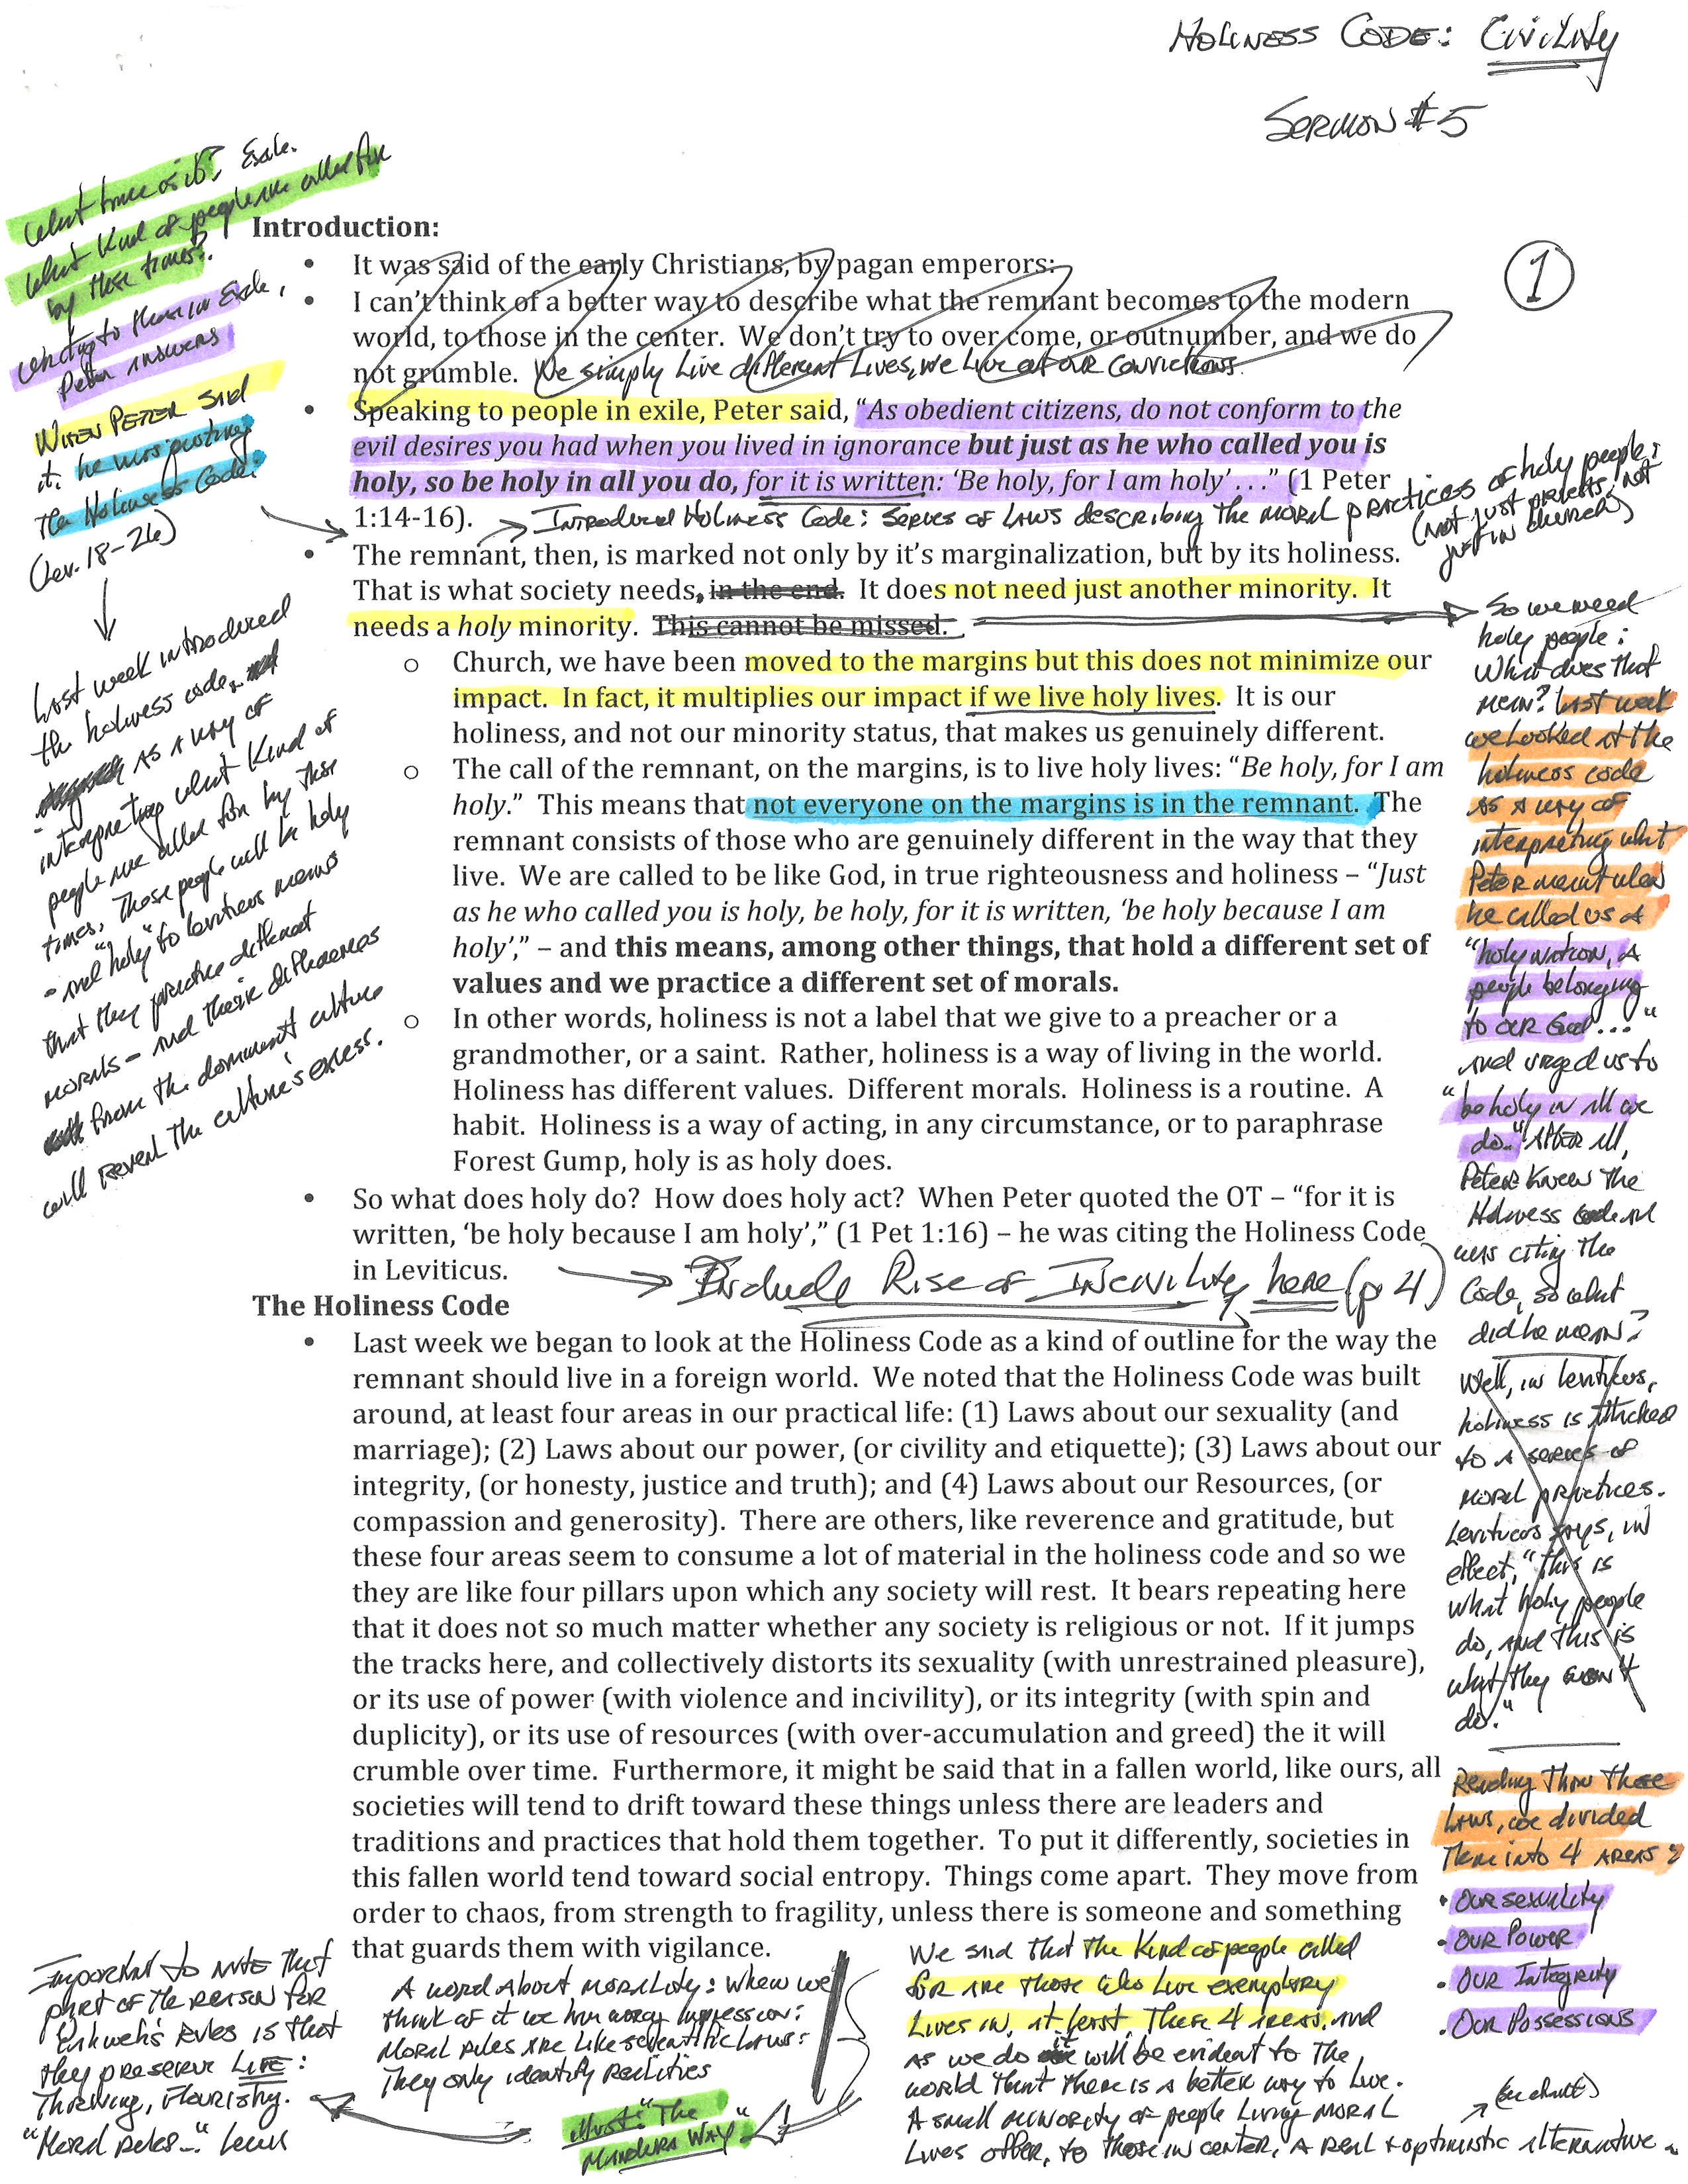 HOLINESS CODE: Civility
SERMON #5
1
What time is it? Exile.
What kind of people are called for
by these times?
Writing to those in Exile,
Peter answers
WHEN PETER SAID
it, he was quoting
The Holiness Code.
(Lev. 18-26)
Last week introduced
the holiness code
as a way of
interpreting what kind of
people are called for by these
times. Those people will be holy
- and "holy" to Leviticus means
that they practice different
morals - and their differences
from the dominant culture
will reveal the culture's excess.
Introduction:
• It was said of the early Christians, by pagan emperors:
• I can't think of a better way to describe what the remnant becomes to the modern
world, to those in the center. We don't try to over come, or outnumber, and we do
not grumble. We simply live different lives, we live out our convictions.
• Speaking to people in exile, Peter said, "As obedient citizens, do not conform to the
evil desires you had when you lived in ignorance but just as he who called you is
holy, so be holy in all you do, for it is written: 'Be holy, for I am holy'..." (1 Peter
1:14-16). → Introduced Holiness Code: Series of laws describing the moral practices of holy people:
(not just priests, not
just in church)
• The remnant, then, is marked not only by it's marginalization, but by its holiness.
That is what society needs, in the end. It does not need just another minority. It
needs a holy minority. This cannot be missed.
o Church, we have been moved to the margins but this does not minimize our
impact. In fact, it multiplies our impact if we live holy lives. It is our
holiness, and not our minority status, that makes us genuinely different.
o The call of the remnant, on the margins, is to live holy lives: "Be holy, for I am
holy." This means that not everyone on the margins is in the remnant. The
remnant consists of those who are genuinely different in the way that they
live. We are called to be like God, in true righteousness and holiness – "Just
as he who called you is holy, be holy, for it is written, 'be holy because I am
holy'," – and this means, among other things, that hold a different set of
values and we practice a different set of morals.
o In other words, holiness is not a label that we give to a preacher or a
grandmother, or a saint. Rather, holiness is a way of living in the world.
Holiness has different values. Different morals. Holiness is a routine. A
habit. Holiness is a way of acting, in any circumstance, or to paraphrase
Forest Gump, holy is as holy does.
• So what does holy do? How does holy act? When Peter quoted the OT – "for it is
written, 'be holy because I am holy'," (1 Pet 1:16) – he was citing the Holiness Code
in Leviticus. → Include Rise of Incivility here (p 4)
The Holiness Code
• Last week we began to look at the Holiness Code as a kind of outline for the way the
remnant should live in a foreign world. We noted that the Holiness Code was built
around, at least four areas in our practical life: (1) Laws about our sexuality (and
marriage); (2) Laws about our power, (or civility and etiquette); (3) Laws about our
integrity, (or honesty, justice and truth); and (4) Laws about our Resources, (or
compassion and generosity). There are others, like reverence and gratitude, but
these four areas seem to consume a lot of material in the holiness code and so we
they are like four pillars upon which any society will rest. It bears repeating here
that it does not so much matter whether any society is religious or not. If it jumps
the tracks here, and collectively distorts its sexuality (with unrestrained pleasure),
or its use of power (with violence and incivility), or its integrity (with spin and
duplicity), or its use of resources (with over-accumulation and greed) the it will
crumble over time. Furthermore, it might be said that in a fallen world, like ours, all
societies will tend to drift toward these things unless there are leaders and
traditions and practices that hold them together. To put it differently, societies in
this fallen world tend toward social entropy. Things come apart. They move from
order to chaos, from strength to fragility, unless there is someone and something
that guards them with vigilance.
So we need
holy people:
What does that
mean? Last week
we looked at the
holiness code
as a way of
interpreting what
Peter meant when
he called us a
"holy nation, a
people belonging
to our God..."
and urged us to
"be holy in all we
do." After all,
Peter knew the
Holiness code and
was citing the
Code, so what
did he mean?
Well, in Leviticus,
holiness is attached
to a series of
moral practices.
Leviticus says, in
effect, "This is
what holy people
do, and this is
what they won't
do."
Reading thru these
laws, we divided
them into 4 areas:
• Our sexuality
• Our Power
• Our Integrity
• Our Possessions
Important to note that
part of the reason for
Yahweh's rules is that
they preserve LIFE:
Thriving, Flourishing.
"Moral rules..." Lewis
A word about morality: When we
think of it we have wrong impression:
Moral rules are like scientific laws:
They only identify realities
Illust: "The
Mandura Way"
We said that the kind of people called
for are those who live exemplary
lives in, at least, these 4 areas, and
as we do it will be evident to the
world that there is a better way to live.
A small minority of people living moral
lives offer, to those in center, a real + optimistic alternative